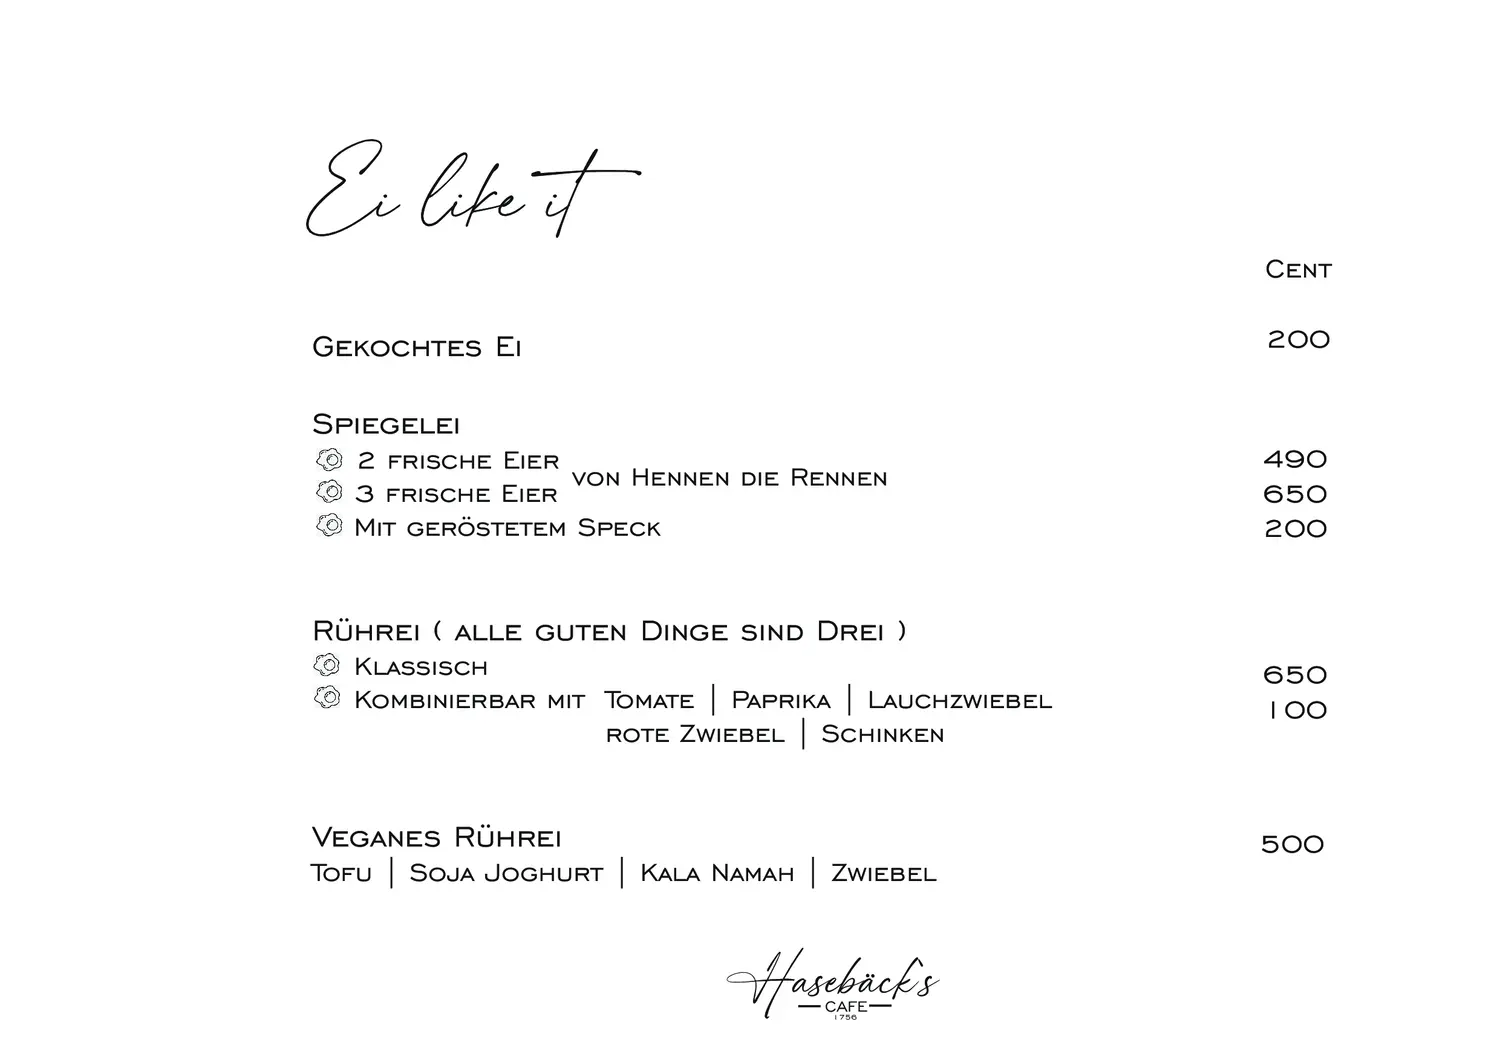 Ei like it
Cent
Gekochtes Ei 200
Spiegelei
2 frische Eier 490
von Hennen die Rennen
3 frische Eier 650
Mit geröstetem Speck 200
Rührei ( alle guten Dinge sind Drei )
Klassisch 650
Kombinierbar mit Tomate | Paprika | Lauchzwiebel 100
rote Zwiebel | Schinken
Veganes Rührei 500
Tofu | Soja Joghurt | Kala Namah | Zwiebel
Hasebäck's
CAFE
1756